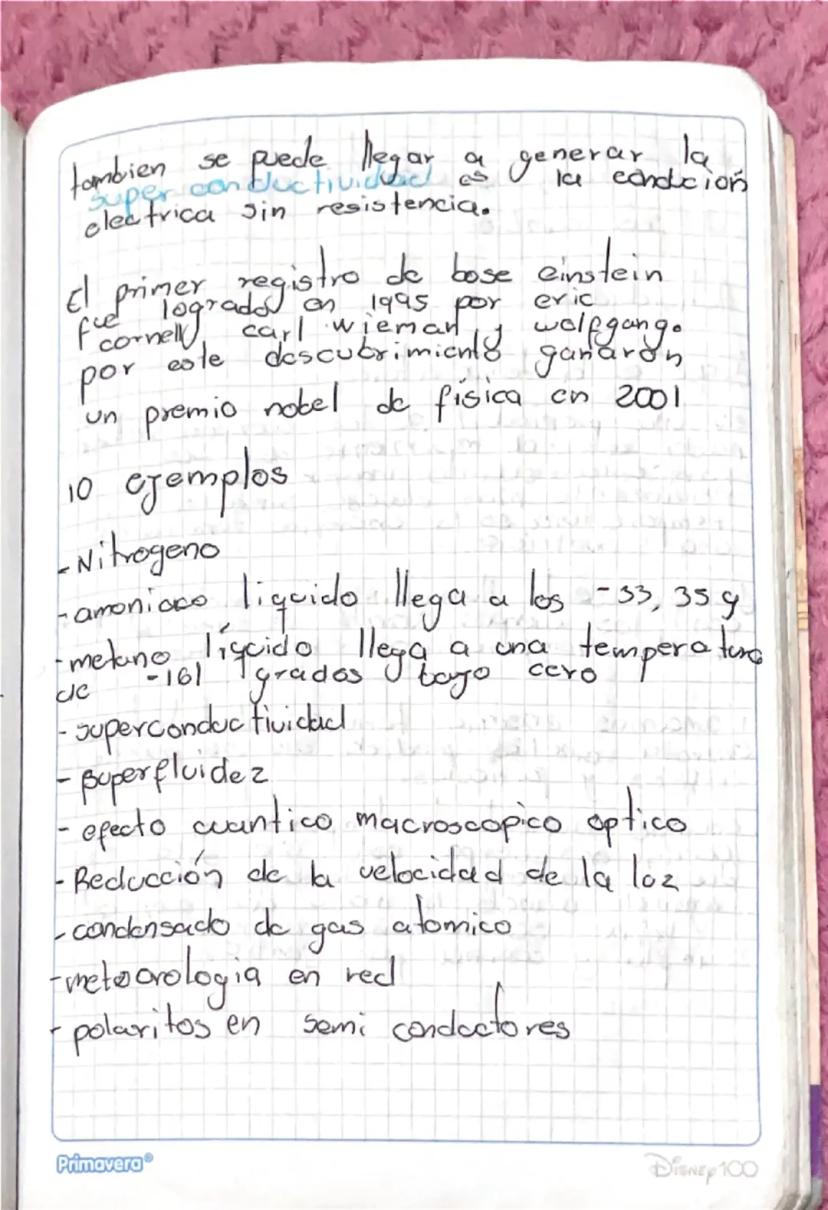 tambien se puede llegar a generar la
super conductividad es la condución
electrica sin resistencia.
El primer registro de bose einstein
fue logrado en 1995 por eric
cornell carl wieman y wolfgang.
por este descubrimiento ganarón
un premio nobel de física en 2001
10 ejemplos
-Nitrogeno
-amoniaco liquido llega a los -33, 35 g
-metano líquido llega a una temperatura
de -161 grados bajo cero
-superconductividad
-superfluidez
-efecto cuantico macroscopico optico
-Reducción de la velocidad de la luz
-condensado de gas atomico
-meteorologia en red
-polaritos en semi conductores
Primavera®
DISNEY 100